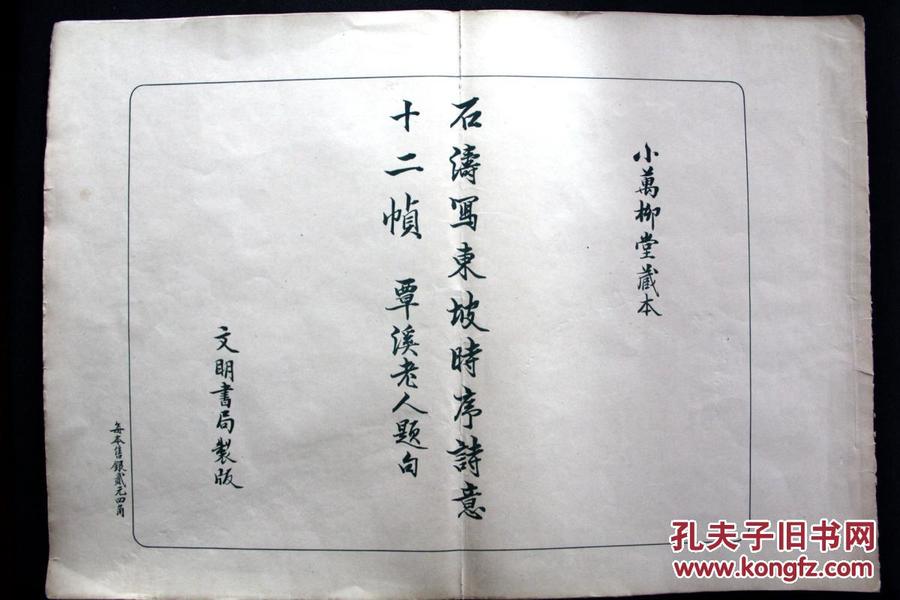 小萬柳堂藏本
石濤寫東坡時序詩意
十二幀 覃溪老人題句
文明書局製版
每本售銀貳元四角
孔夫子旧书网
www.kongfz.com